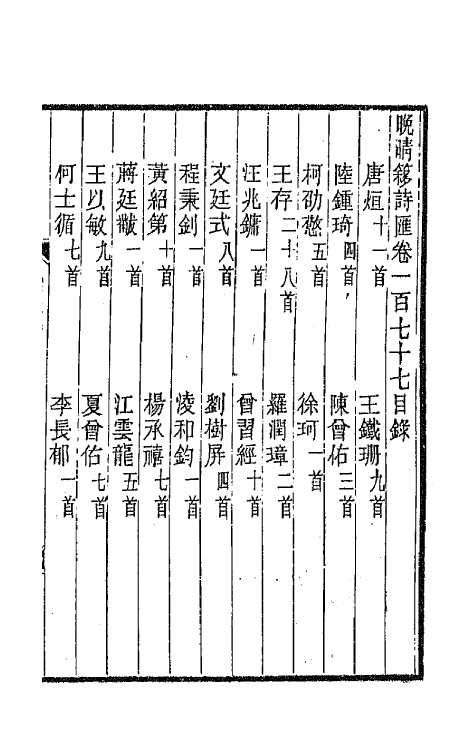 晚晴簃詩匯卷一百七十七目錄
唐烜十一首 王鐵珊九首
陸鍾琦四首 陳曾佑三首
柯劭憼五首 徐珂一首
王存二十八首 羅潤璋二首
汪兆鏞一首 曾習經十首
文廷式八首 劉樹屏四首
程秉釗一首 淩和鈞一首
黃紹第十首 楊承禧七首
蔣廷黻一首 江雲龍五首
王以敏九首 夏曾佑七首
何士循七首 李長郁一首